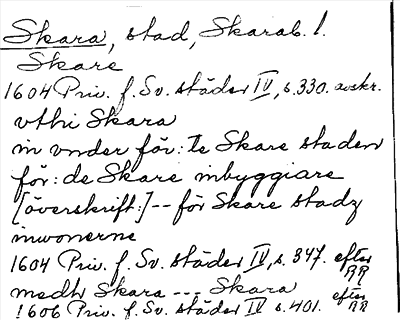 Skara, stad, Skarab. l.
Skare
1604 Priv. f. Sv. städer IV, s. 330. avskr.
vthi Skara
in vnder för: The Skare staden
för: de Skare inbyggiare
[överskrift:] -- för Skare stadz
inwonerne
1604 Priv. f. Sv. städer IV, s. 347. efter RR
medh Skara --- Skara
1606 Priv. f. Sv. städer IV s. 401. efter RR